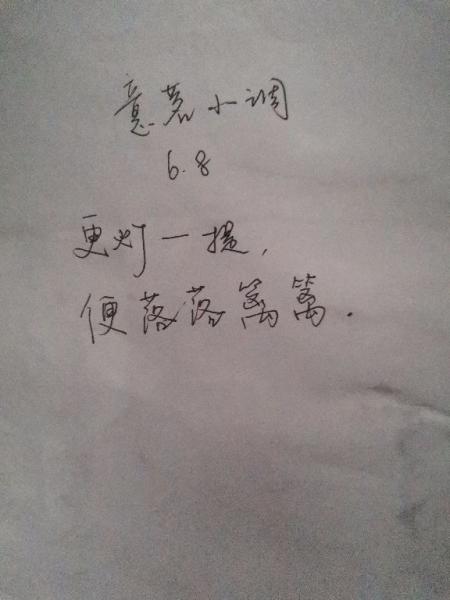 意茗小调
6.8
更灯一提，
便落落篱篱．